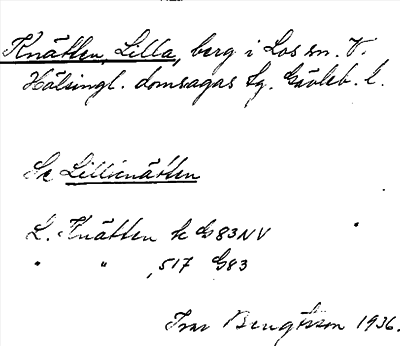 Knätten, Lilla, berg i Los sn. V.
Hälsingl. domsagas tg. Gävleb. l.
Se Lillknätten
L. Knätten k G83NV
" " , 517 G83
Ivar Bengtsson 1936.